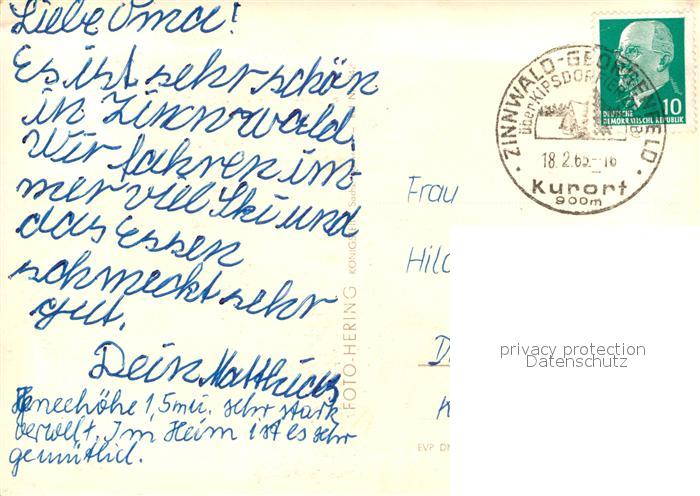 Liebe Oma!
Es ist sehr schön
in Zinnwald.
Wir fahren im-
mer viel Ski und
das Essen
schmeckt sehr
gut.
Dein Matthias
Schneehöhe 1,5m u. sehr stark
verweht. Im Heim ist es sehr
gemütlich.
FOTO-HERING
EVP DM
ZINNWALD-GEORGENFELD
über KIPSDORF
18.2.65.-16
Kurort
900m
10
DEUTSCHE
DEMOKRATISCHE REPUBLIK
Frau
privacy protection
Datenschutz